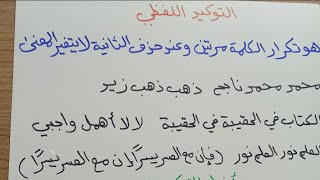 التوكيد اللفظي
هو تكرار الكلمة مرتين وعند حذف الثانية لا يتغير المعنى
محمد محمد ناجح ذهب ذهب زيد
الكتاب في الحقيبة في الحقيبة لا لا أهمل واجبي
العلم نور العلم نور (فإن مع العسر يسرًا إن مع العسر يسرًا)